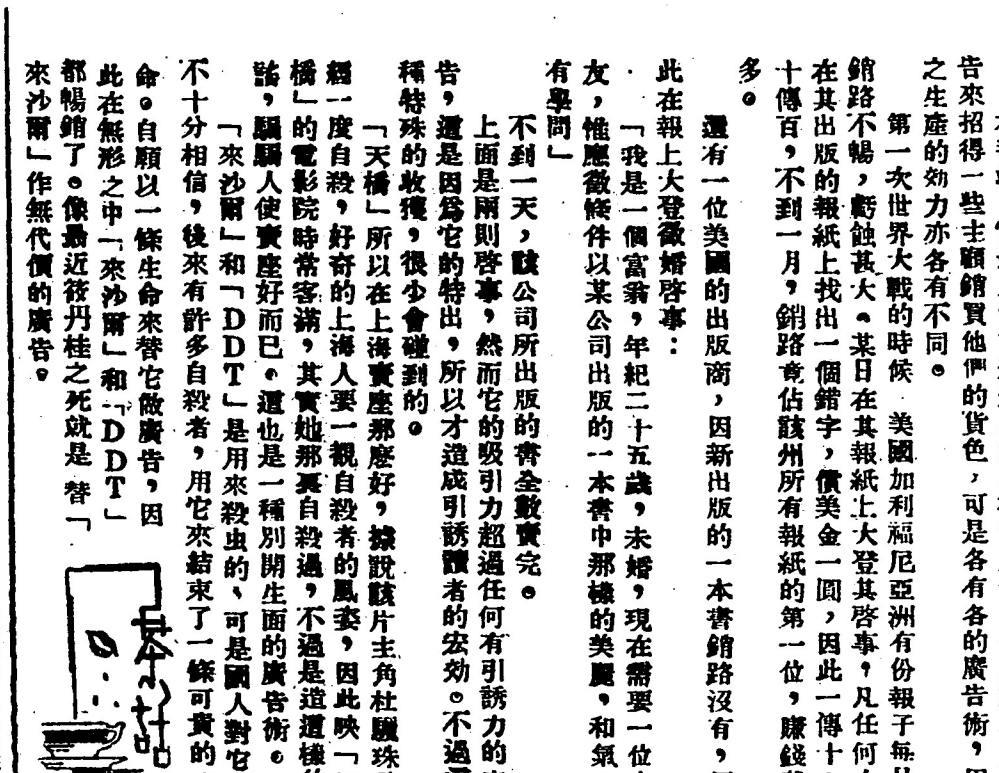 告來招得一些士顧銷買他們的貨色，可是各有各的廣告術，
之生產的効力亦各有不同。
第一次世界大戰的時候　美國加利福尼亞洲有份報子每
銷路不暢，虧蝕甚大。某日在其報紙上大登其啓事，凡任何
在其出版的報紙上找出一個錯字，償美金一圓，因此一傳十
十傳百，不到一月，銷路竟佔該州所有報紙的第一位，賺錢
多。
還有一位美國的出版商，因新出版的一本書銷路沒有，
此在報上大登徵婚啓事：
「我是一個富翁，年紀二十五歲，未婚，現在需要一位
友，惟應徵條件以某公司出版的一本書中那樣的美麗，和氣
有學問」
不到一天，該公司所出版的書全數賣完。
上面是兩則啓事，然而它的吸引力超過任何有引誘力的
告，這是因爲它的特出，所以才造成引誘讀者的宏効。不過
種特殊的收穫，很少會碰到的。
「天橋」所以在上海賣座那麼好，據說該片主角杜驪珠
經一度自殺，好奇的上海人要一觀自殺者的風姿，因此映「
橋」的電影院時常客滿，其實她那裏自殺過，不過是造這樣
話，騙騙人使賣座好而已。這也是一種別開生面的廣告術。
「來沙爾」和「DDT」是用來殺虫的、可是國人對它
不十分相信，後來有許多自殺者，用它來結束了一條可貴的
命。自願以一條生命來替它做廣告，因
此在無形之中「來沙爾」和「DDT」
都暢銷了。像最近筱丹桂之死就是替「
來沙爾」作無代價的廣告。